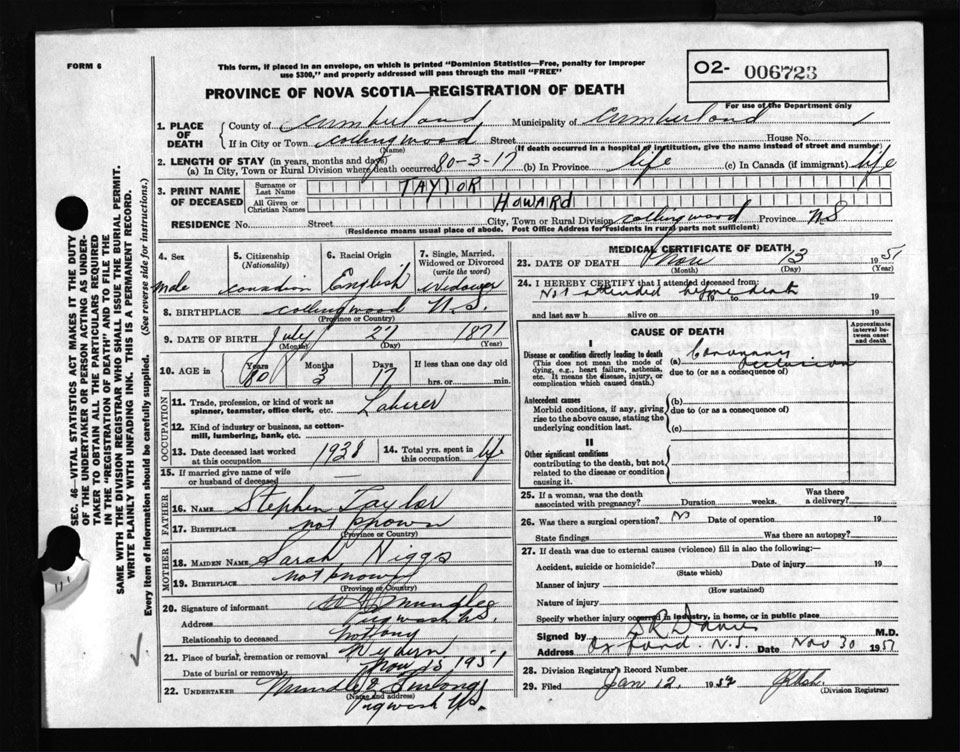 FORM 6
This form, if placed in an envelope, on which is printed "Dominion Statistics—Free, penalty for improper
use $300," and properly addressed will pass through the mail "FREE"
O2- 006723
For use of the Department only
PROVINCE OF NOVA SCOTIA—REGISTRATION OF DEATH
1. PLACE OF DEATH
County of Cumberland Municipality of Cumberland
If in City or Town Collingwood Street House No.
(Name) (If death occurred in a hospital or institution, give the name instead of street and number)
2. LENGTH OF STAY (in years, months and days)
(a) In City, Town or Rural Division where death occurred 80-3-17 (b) In Province life (c) In Canada (if immigrant) life
3. PRINT NAME OF DECEASED
Surname or Last Name TAYLOR
All Given or Christian Names HOWARD
RESIDENCE No. Street City, Town or Rural Division Collingwood Province N.S
(Residence means usual place of abode. Post Office Address for residents in rural parts not sufficient)
4. Sex 5. Citizenship 6. Racial Origin 7. Single, Married, Widowed or Divorced
(Nationality) (write the word)
Male Canadian English Widower
8. BIRTHPLACE Collingwood N.S.
(Province or Country)
9. DATE OF BIRTH July 27 1871
(Month) (Day) (Year)
10. AGE in Years Months Days If less than one day old
80 3 17 hrs. or min.
OCCUPATION
11. Trade, profession, or kind of work as
spinner, teamster, office clerk, etc. Laborer
12. Kind of industry or business, as cotton-
mill, lumbering, bank, etc.
13. Date deceased last worked
at this occupation 1938 14. Total yrs. spent in
this occupation life
15. If married give name of wife
or husband of deceased
FATHER
16. NAME Stephen Taylor
17. BIRTHPLACE not known
(Province or Country)
MOTHER
18. MAIDEN NAME Sarah Niggs
19. BIRTHPLACE not known
(Province or Country)
20. Signature of informant
Address Pugwash N.S.
Relationship to deceased
21. Place of burial, cremation or removal
Date of burial or removal Nov 15 1951
22. UNDERTAKER Furlong
(Name and address)
Pugwash N.S.
MEDICAL CERTIFICATE OF DEATH
23. DATE OF DEATH Nov 13 1951
(Month) (Day) (Year)
24. I HEREBY CERTIFY that I attended deceased from:
Not attended before death
19 to 19
and last saw h alive on 19
CAUSE OF DEATH
Approximate interval between cause and death
I
Disease or condition directly leading to death
(This does not mean the mode of
dying, e.g., heart failure, asthenia,
etc. It means the disease, injury, or
complication which caused death.)
(a) Coronary Occlusion
due to (or as a consequence of)
Antecedent causes
Morbid conditions, if any, giving
rise to the above cause, stating the
underlying condition last.
(b)
due to (or as a consequence of)
(c)
II
Other significant conditions
contributing to the death, but not
related to the disease or condition
causing it.
25. If a woman, was the death
associated with pregnancy? Duration weeks. Was there
a delivery?
26. Was there a surgical operation? No Date of operation 19
State findings Was there an autopsy?
27. If death was due to external causes (violence) fill in also the following:—
Accident, suicide or homicide? Date of injury 19
(State which)
Manner of injury
(How sustained)
Nature of injury
Specify whether injury occurred in industry, in home, or in public place
Signed by Davis M.D.
Address Oxford N.S. Date Nov 30 1951
28. Division Registrar's Record Number
29. Filed Jan 12, 1952
(Division Registrar)
SEC. 46—VITAL STATISTICS ACT MAKES IT THE DUTY
OF THE UNDERTAKER OR PERSON ACTING AS UNDER-
TAKER TO OBTAIN ALL THE PARTICULARS REQUIRED
IN THE "REGISTRATION OF DEATH" AND TO FILE THE
SAME WITH THE DIVISION REGISTRAR WHO SHALL ISSUE THE BURIAL PERMIT.
WRITE PLAINLY WITH UNFADING INK. THIS IS A PERMANENT RECORD.
Every item of information should be carefully supplied. (See reverse side for instructions.)